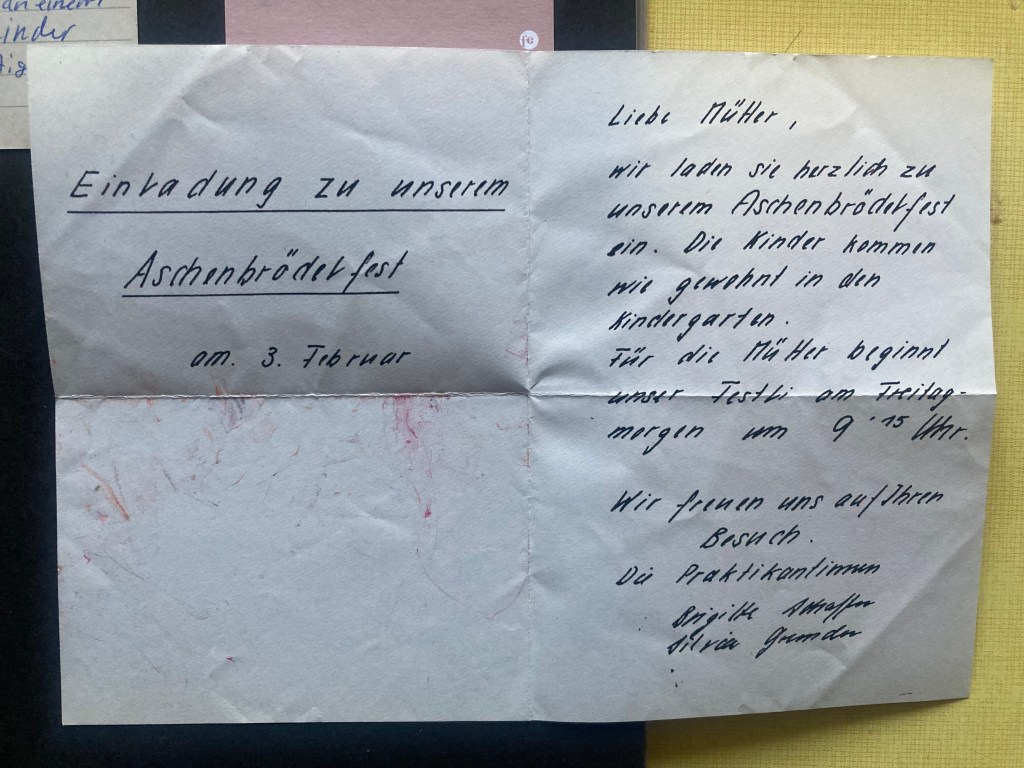 an einem
inder
fc
Einladung zu unserem
Aschenbrödelfest
am. 3. Februar
Liebe Mütter,
wir laden sie herzlich zu
unserem Aschenbrödelfest
ein. Die Kinder kommen
wie gewohnt in den
Kindergarten.
Für die Mütter beginnt
unser Festli am Freitag-
morgen um 9.15 Uhr.
Wir freuen uns auf Ihren
Besuch.
Die Praktikantinnen
Brigitte
Silvia